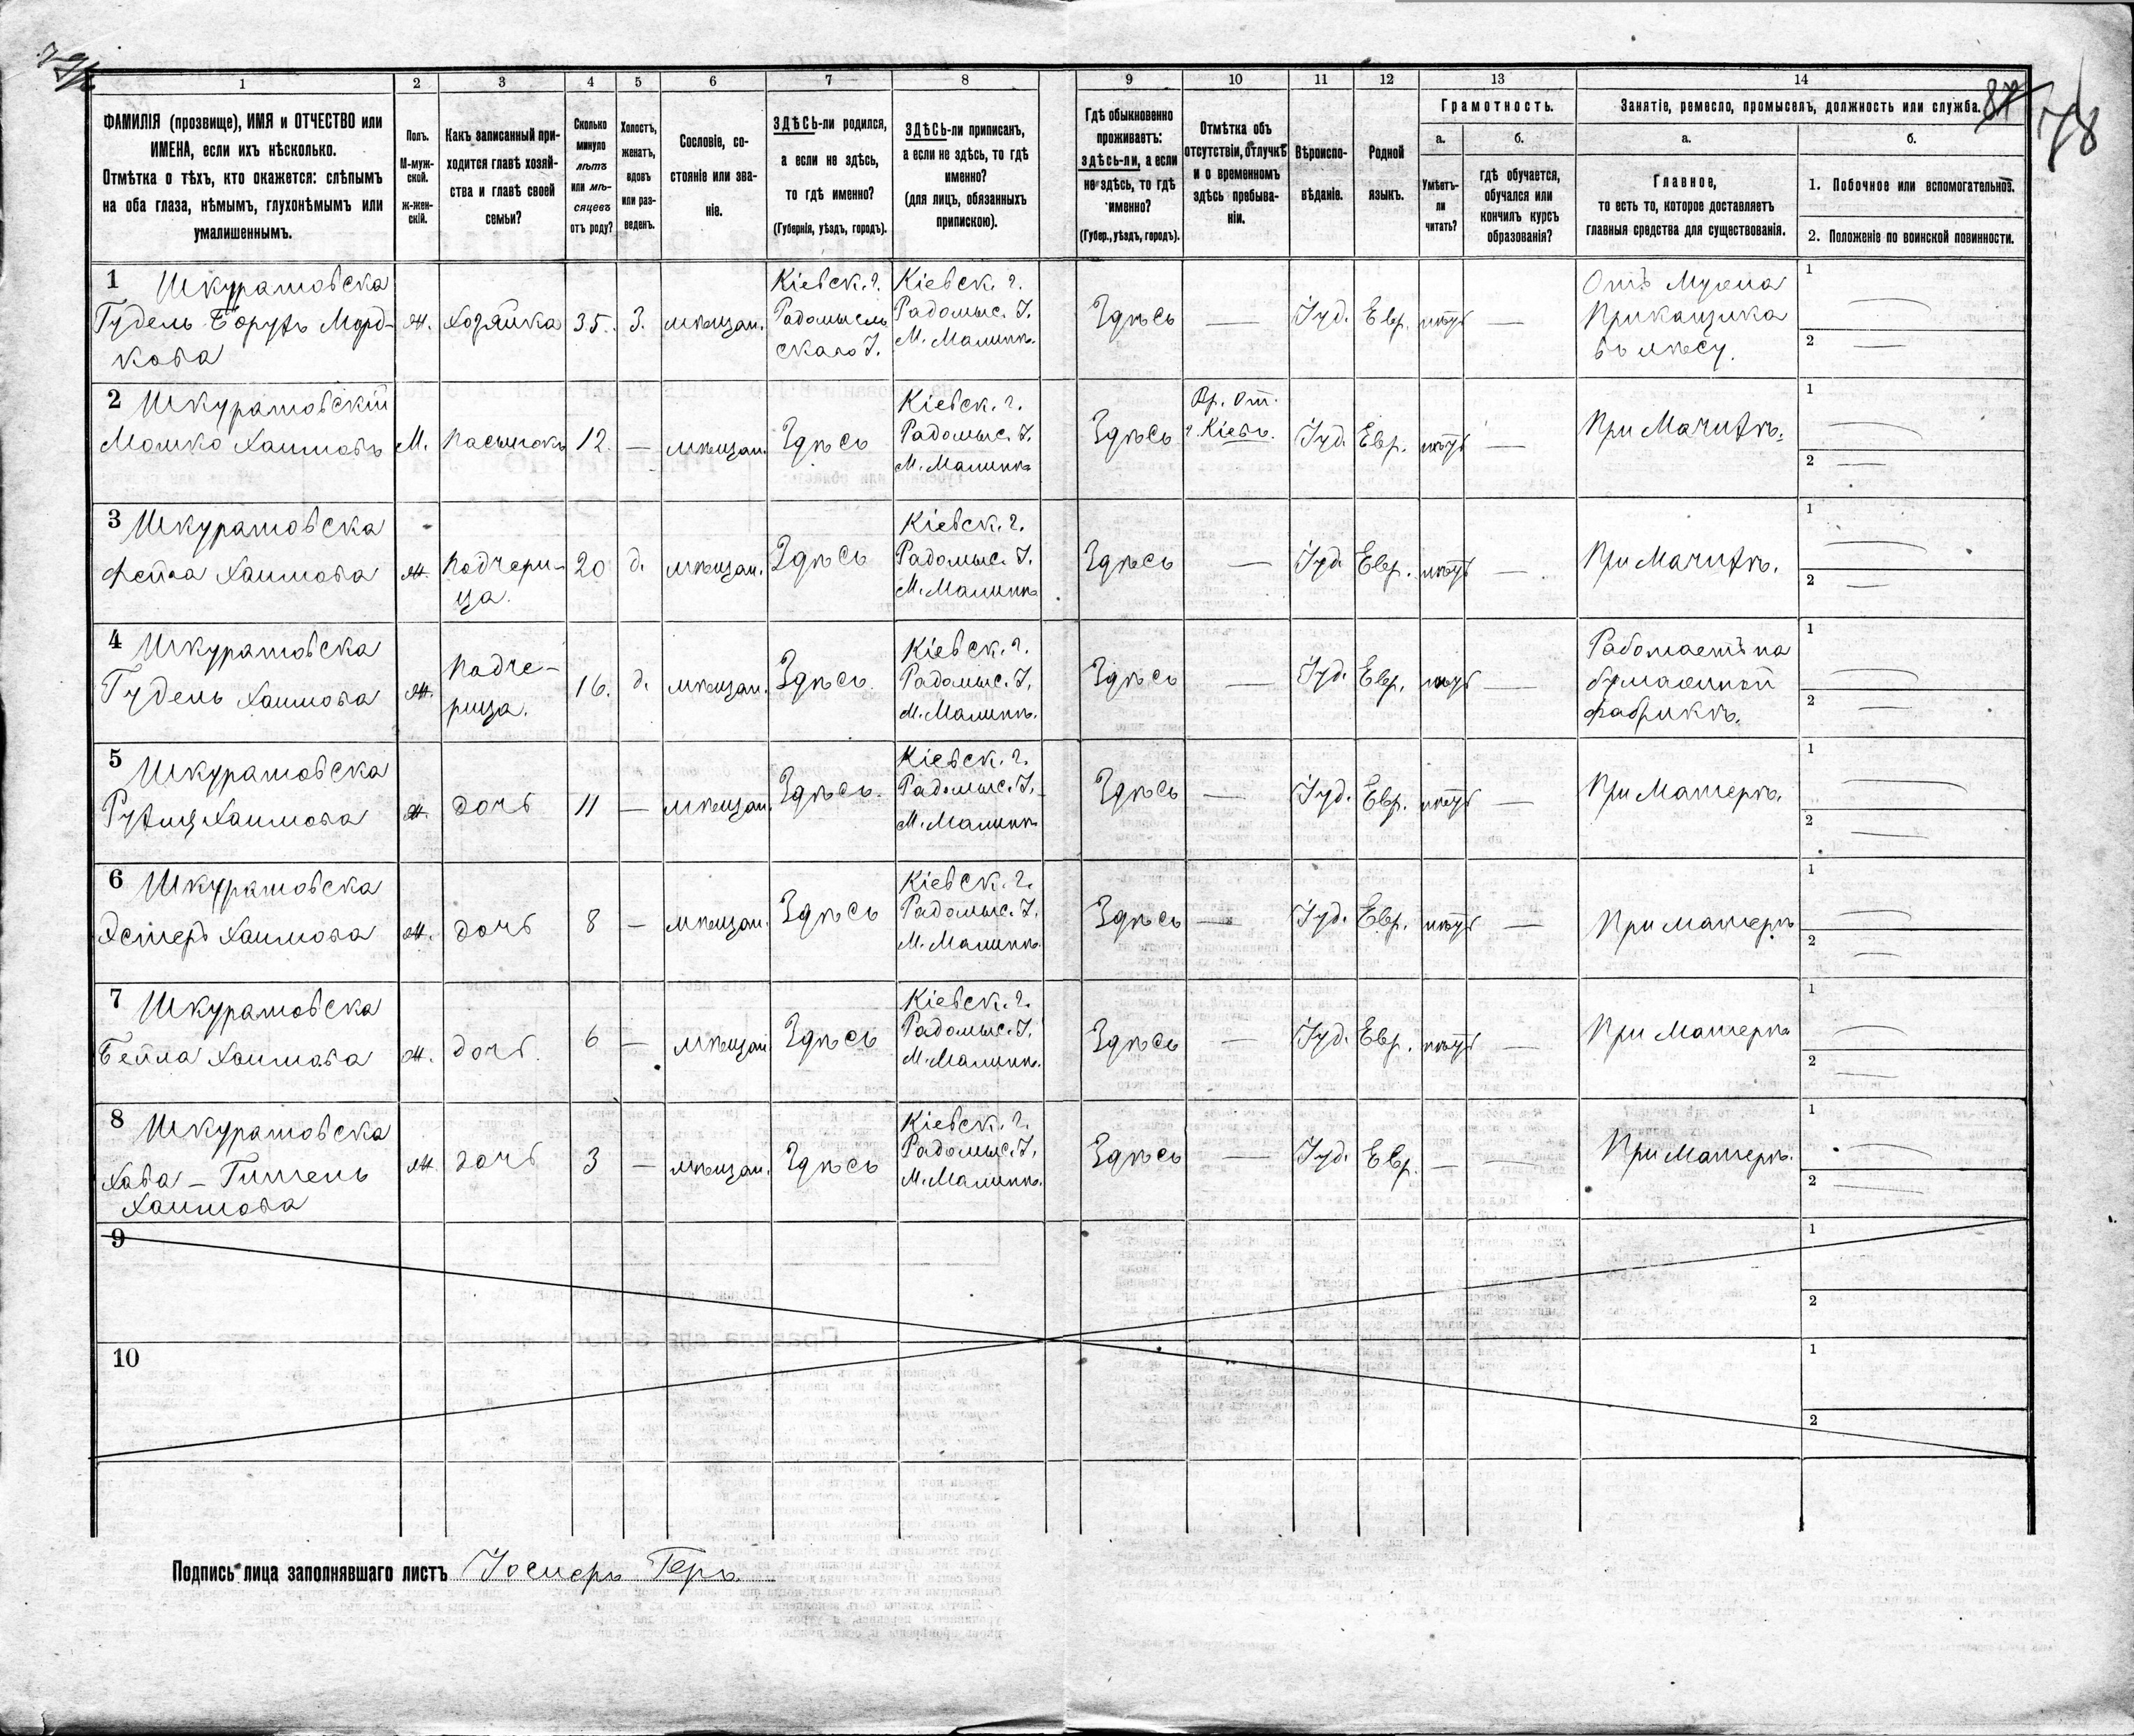 79/
87
78
1
2
3
4
5
6
7
8
9
10
11
12
13
14
ФАМИЛІЯ (прозвище), ИМЯ и ОТЧЕСТВО или
ИМЕНА, если ихъ нѣсколько.
Отмѣтка о тѣхъ, кто окажется: слѣпымъ
на оба глаза, нѣмымъ, глухонѣмымъ или
умалишеннымъ.
Полъ.
М-муж-
ской.
ж-жен-
скій.
Какъ записанный при-
ходится главѣ хозяй-
ства и главѣ своей
семьи?
Сколько
минуло
лѣтъ
или мѣ-
сяцевъ
отъ роду?
Холостъ,
женатъ,
вдовъ
или раз-
веденъ.
Сословіе, со-
стояніе или зва-
ніе.
ЗДѢСЬ-ли родился,
а если не здѣсь,
то гдѣ именно?
(Губернія, уѣздъ, городъ).
ЗДѢСЬ-ли приписанъ,
а если не здѣсь, то гдѣ
именно?
(для лицъ, обязанныхъ
припискою).
Гдѣ обыкновенно
проживаетъ:
здѣсь-ли, а если
не здѣсь, то гдѣ
именно?
(Губер., уѣздъ, городъ).
Отмѣтка объ
отсутствіи, отлучкѣ
и о временномъ
здѣсь пребыва-
ніи.
Вѣроиспо-
вѣданіе.
Родной
языкъ.
Грамотность.
а.
б.
Умѣетъ-
ли
читать?
гдѣ обучается,
обучался или
кончилъ курсъ
образованія?
Занятіе, ремесло, промыселъ, должность или служба.
а.
б.
Главное,
то есть то, которое доставляетъ
главныя средства для существованія.
1. Побочное или вспомогательное.
2. Положеніе по воинской повинности.
1 Шкуратовска
Гудель Борухъ Морд-
кова
ж.
хозяйка
35.
З.
мѣщан.
Кіевск. г.
Радомысль
скаго У.
Кіевск. г.
Радомыс. У.
М. Малинѣ.
Здѣсь
—
Іуд.
Евр.
нѣтъ
—
Отъ Мужа
Приказчика
въ лѣсу.
1
2
2 Шкуратовскій
Мошко Хаимовъ
М.
пасынокъ
12.
—
мѣщан.
Здѣсь
Кіевск. г.
Радомыс. У.
М. Малинѣ
Здѣсь
Вр. От.
г. Кіевъ.
Іуд.
Евр.
нѣтъ
—
При Мачихѣ.
1
2
3 Шкуратовска
Фейга Хаимова
ж.
Подчери-
ца.
20
д.
мѣщан.
Здѣсь
Кіевск. г.
Радомыс. У.
М. Малинѣ
Здѣсь
—
Іуд.
Евр.
нѣтъ
—
При Мачихѣ.
1
2
4 Шкуратовска
Гудель Хаимова
ж.
Подче-
рица.
16.
д.
мѣщан.
Здѣсь.
Кіевск. г.
Радомыс. У.
М. Малинѣ.
Здѣсь
—
Іуд.
Евр.
нѣтъ
—
Работаетъ на
бумажной
фабрикѣ.
1
2
5 Шкуратовска
Хаимова
ж.
дочь
11
—
мѣщан.
Здѣсь.
Кіевск. г.
Радомыс. У.
М. Малинѣ
Здѣсь
—
Іуд.
Евр.
нѣтъ
—
При Матерѣ.
1
2
6 Шкуратовска
Эстеръ Хаимова
ж.
дочь
8
—
мѣщан.
Здѣсь
Кіевск. г.
Радомыс. У.
М. Малинѣ.
Здѣсь
—
Іуд.
Евр.
нѣтъ
—
При матерѣ
1
2
7 Шкуратовска
Бейла Хаимова
ж.
дочь.
6
—
мѣщан
Здѣсь
Кіевск. г.
Радомыс. У.
М. Малинѣ.
Здѣсь
—
Іуд.
Евр.
нѣтъ
—
При Матерѣ
1
2
8 Шкуратовска
Хава - Гитель
Хаимова
ж.
дочь
3
—
мѣщан.
Здѣсь
Кіевск. г.
Радомыс. У.
М. Малинѣ.
Здѣсь
—
Іуд.
Евр.
—
—
При Матерѣ.
1
2
9
1
2
10
1
2
Подпись лица заполнявшаго листъ